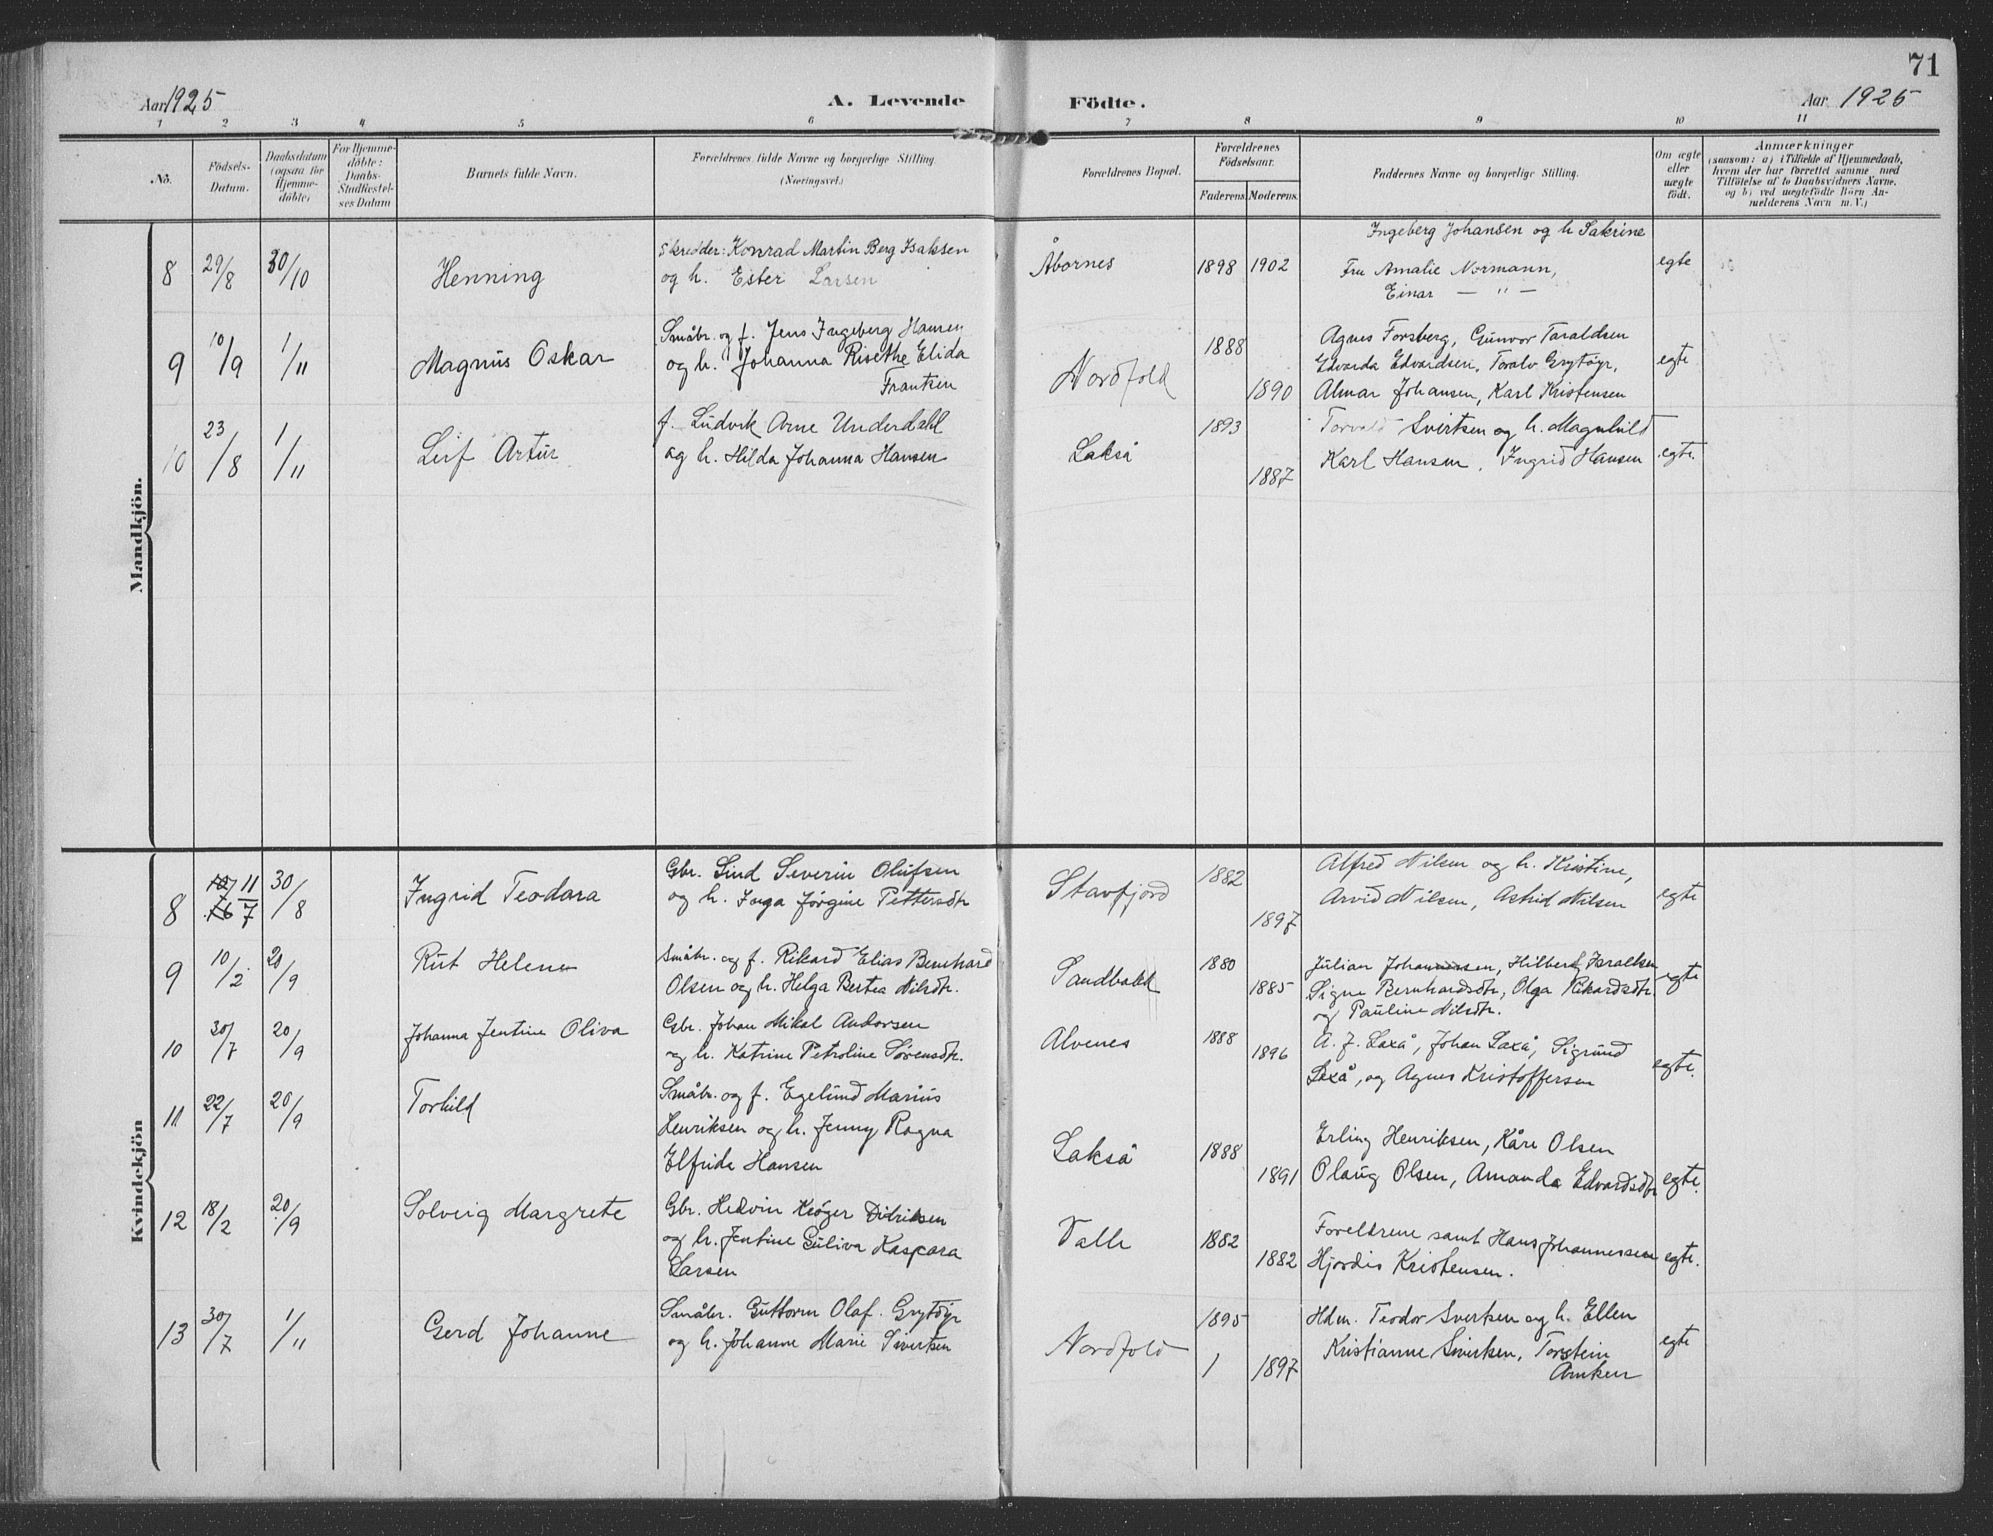 71
Aar 1925 A. Levende Födte. Aar 1925
1 2 3 4 5 6 7 8 9 10 11
No.
Födsels-
Datum.
Daabsdatum
(ogsaa for
Hjemme-
döbte)
For Hjemme-
döbte:
Daabs-
Stadfæstel-
ses Datum
Barnets fulde Navn.
Forældrenes fulde Navne og borgerlige Stilling.
(Næringsvei.)
Forældrenes Bopæl.
Forældrenes
Födselsaar.
Faderens. Moderens.
Faddernes Navne og borgerlige Stilling.
Om ægte
eller
uægte
födt.
Anmærkninger
(saasom: a) i Tilfælde af Hjemmedaab,
hvem der har forrettet samme med
Tilföielse af to Daabsvidners Navne,
og b) ved uægtefödte Börn An-
melderens Navn m. V.)
Mandkjön.
8 29/8 30/10 Henning
Skredder: Konrad Martin Berg Isaksen
og h. Ester Larsen
Åbornes 1898 1902
Ingeberg Johansen og h Sakrine
Fru Amalie Normann,
Einar — " —
egte
9 10/9 1/11 Magnus Oskar
Småbr. og f. Jens Ingeberg Hansen
og h. Johanna Risethe Elida
Frantsen
Nordfold 1888 1890
Agnes Forsberg, Gunvor Taraldsen
Edvarda Edvardsen, Toralv Grytöyr,
Almar Johansen, Karl Kristensen
egte
10 23/8 1/11 Leif Artur
f. Ludvik Arne Underdahl
og h. Hilda Johanna Hansen
Lakså 1893 1887
Torvald Sivertsen og h. Magnhild
Karl Hansen, Ingrid Hansen
egte.
Kvindekjön
8 11/7 30/8 Ingrid Teodora
Gbr. Sind Severin Olufsen
og h. Inga Jørgine Pettersdtr
Stavfjord 1882 1897
Alfred Nilsen og h. Kristine,
Arvid Nilsen, Astrid Nilsen
egte
9 10/2 20/9 Rut Helene
Småbr. og f. Rikard Elias Bernhard
Olsen og h. Helga Bertea Nilsdtr.
Sandbakk 1880 1885
Julian Johannesen, Hilbert Israelsen
Signe Bernhardsdtr, Olga Rikardsdtr.
og Pauline Nilsdtr.
egte
10 30/7 20/9 Johanna Jentine Oliva
Gbr. Johan Mikal Andorsen
og h. Katrine Petroline Sørensdtr.
Alvenes 1888 1896
A. J. Laxå, Johan Laxå, Sigrund
Laxå, og Agnes Kristoffersen
egte.
11 22/7 20/9 Torhild
Småbr. og f. Egelund Marius
Henriksen og h. Jenny Ragna
Elfride Hansen
Lakså 1888 1891
Erling Henriksen, Kåre Olsen
Olaug Olsen, Amanda Edvardsdtr
egte.
12 18/2 20/9 Solveig Margrete
Gbr. Hedvin Krøger Didriksen
og h. Jentine Guliva Kaspara
Larsen
Valle 1882 1882
Foreldrene samt Hans Johannessen
Hjordis Kristensen.
egte.
13 30/7 1/11 Gerd Johanne
Småbr. Guttorm Olaf. Grytöyr
og h. Johanne Marie Sivertsen
Nordfold 1895 1 1897
Hdm. Teodor Sivertsen og h. Ellen
Kristianne Sivertsen, Torstein
Arntsen
egte